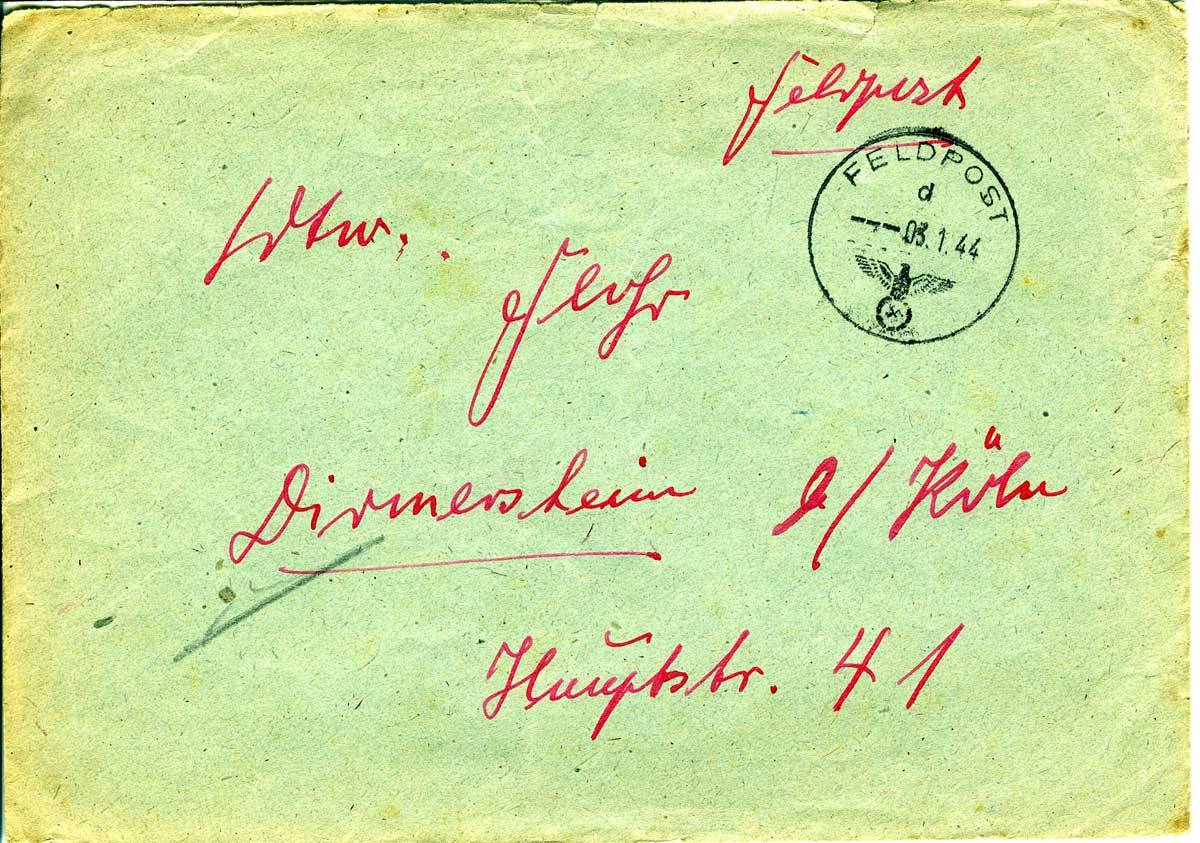 Feldpost
FELDPOST
d
--03.1.44
Flohr
Dirmersheim b/ Köln
Hauptstr. 41